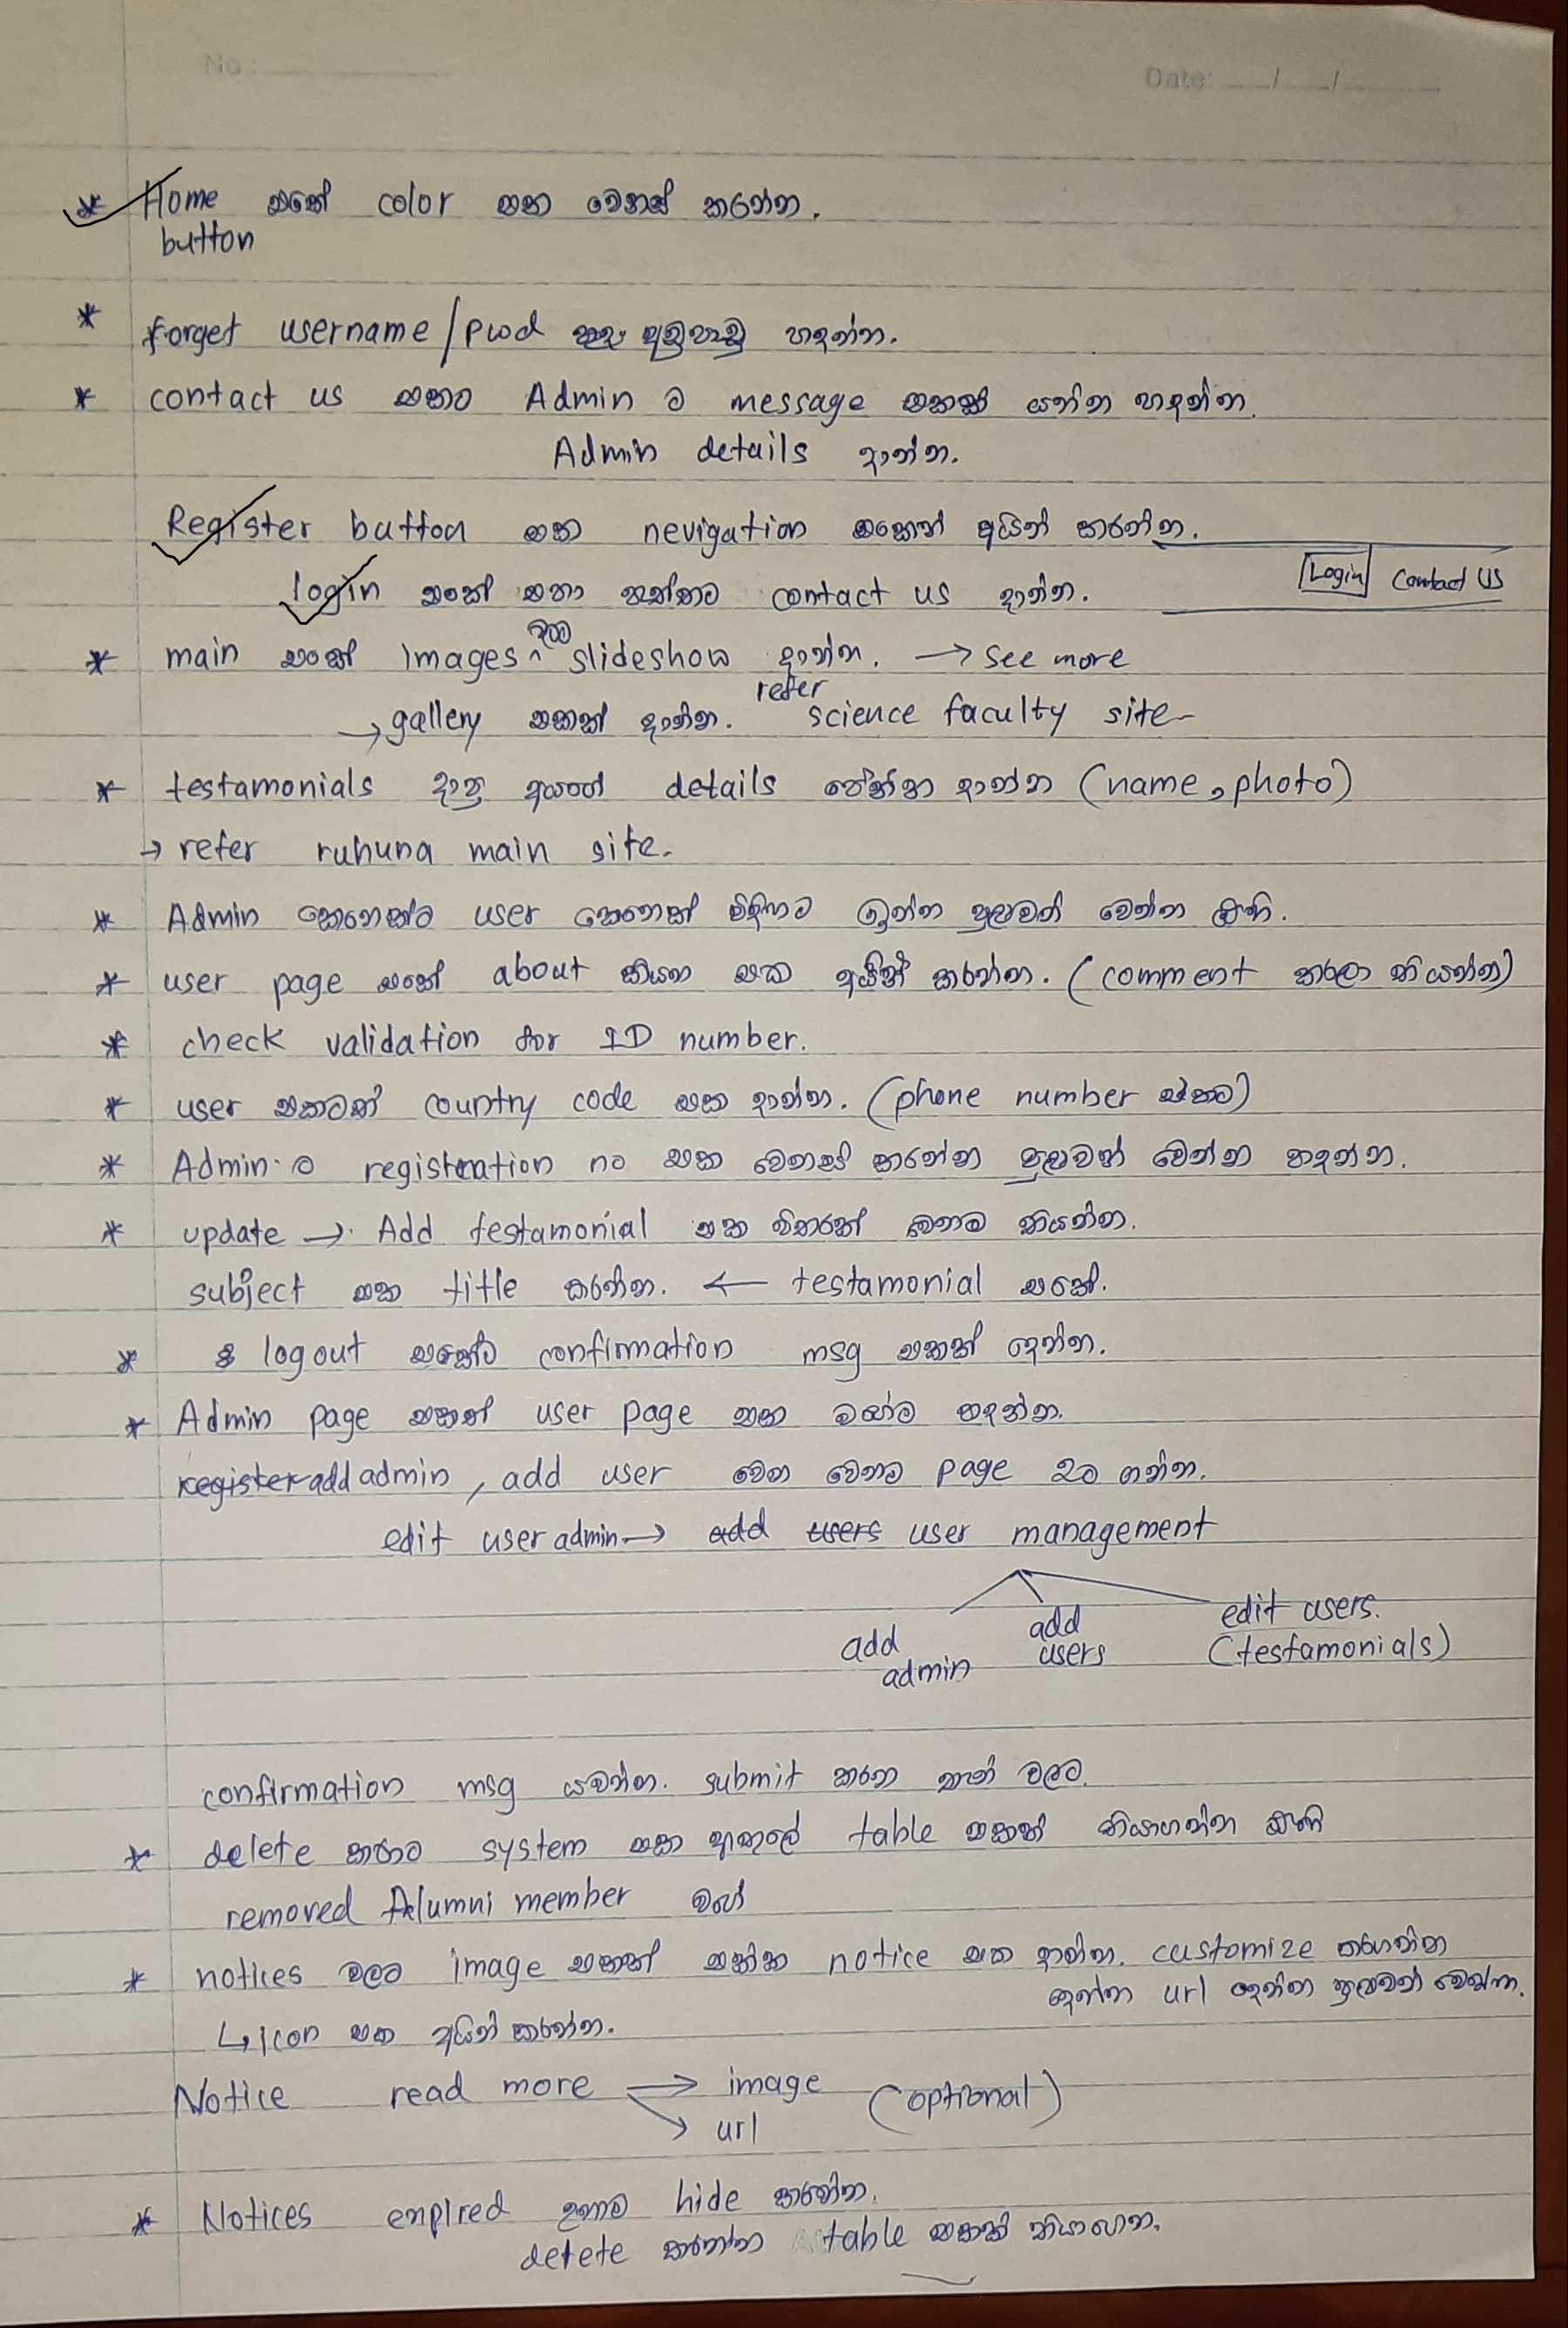 No : Date: / /
* Home එකේ color එක වෙනස් කරන්න.
button
* forget username/pwd අඩුපාඩු හදන්න.
* contact us එකට Admin ට message එකක් යන්න හදන්න.
Admin details දාන්න.
Register button එක nevigation එකෙන් අයින් කරන්න.
login එකේ එහා පැත්තට contact us දාන්න. Login Contact US
* main එකේ Images ටික slideshow දාන්න. → see more
→ gallery එකක් දාන්න. refer science faculty site
* testamonials දාපු අයගේ details පේන්න දාන්න (name, photo)
→ refer ruhuna main site.
* Admin කෙනෙක්ට user කෙනෙක් විදිහට ඉන්න පුළුවන් වෙන්න ඕනි.
* user page එකේ about කියන එක අයින් කරන්න. (comment කරලා තියන්න)
* check validation for ID number.
* user එකටත් country code එක දාන්න. (phone number එකට)
* Admin ට registration no එක වෙනස් කරන්න පුළුවන් වෙන්න හදන්න.
* update → Add testamonial එක විතරක් වෙනම තියන්න.
subject එක title කරන්න. ← testamonial එකේ.
* logout එකේට confirmation msg එකක් දෙන්න.
* Admin page එකත් user page එක වගේම හදන්න.
register add admin, add user වෙන වෙනම page 2ට ගන්න.
edit user admin → add users user management
add admin add users edit users. (testamonials)
confirmation msg යවන්න. submit කරන තැන් වලට.
* delete කරාට system එක ඇතුලේ table එකක් තියාගන්න ඕනි
removed Alumni member වගේ
* notices වලට image එකක් එක්ක notice එක දාන්න. customize කරගන්න
දෙන්න url දෙන්න පුළුවන් වෙන්න.
↳ Icon එක අයින් කරන්න.
Notice read more → image (optional)
→ url
* Notices expired උනාම hide කරන්න.
detete කරන්න table එකක් තියාගෙන.